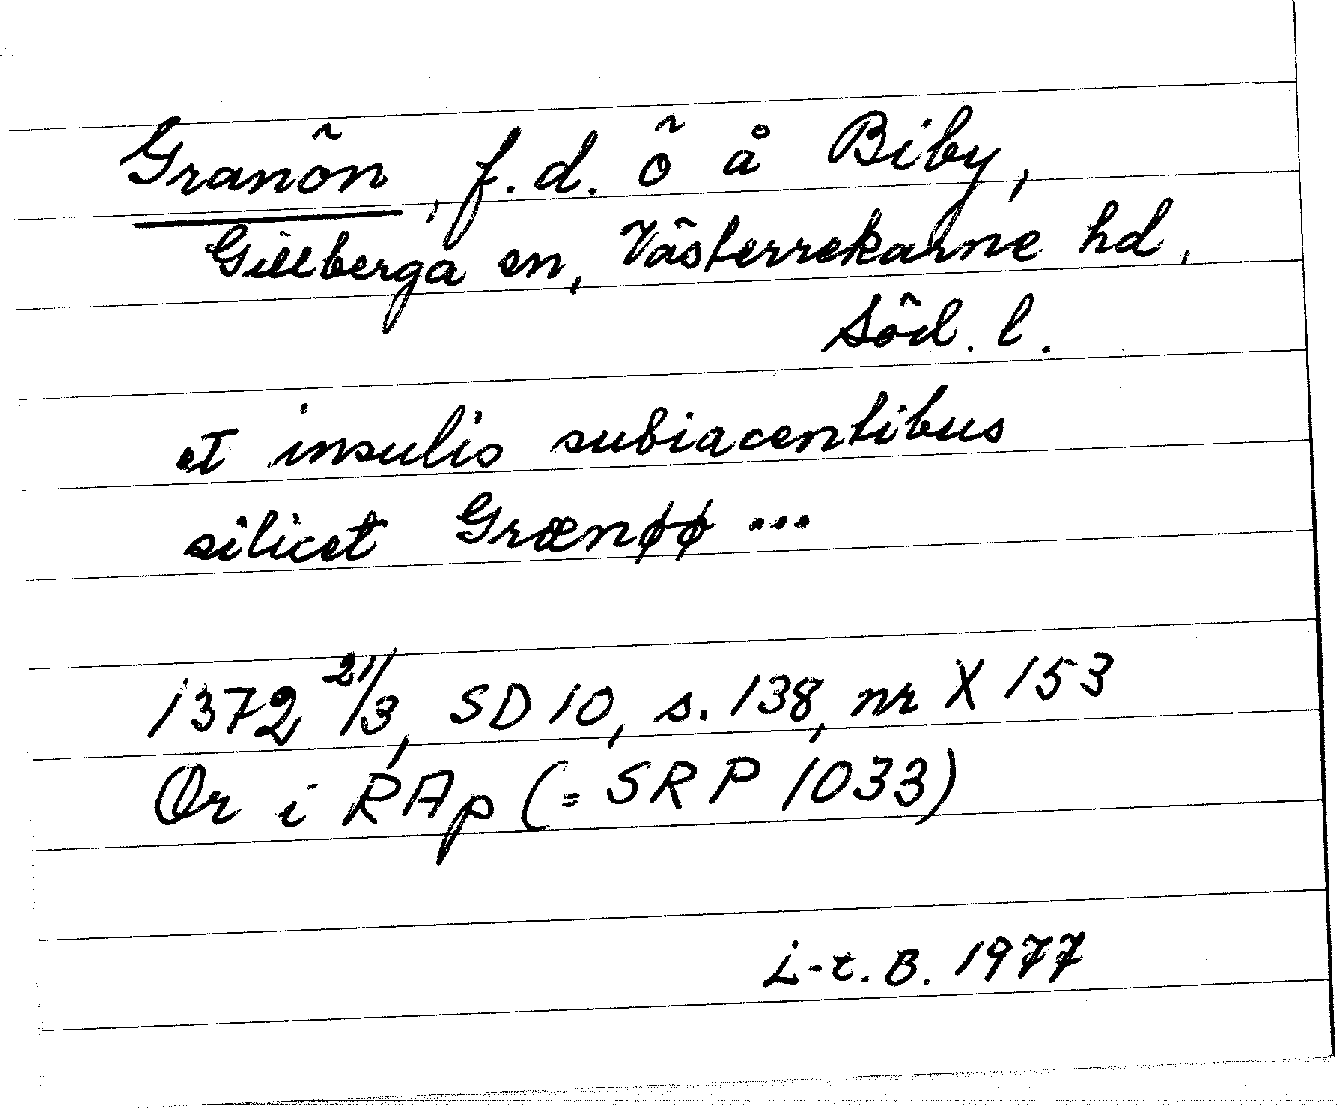 Granön, f.d. ö å Biby,
Gillberga sn, Västerrekarne hd,
Söd. l.
et insulis subiacentibus
silicet Grænøø ...
1372 21/3, SD 10, s. 138, nr X 153
Or i RAp (= SRP 1033)
L-t. B. 1977